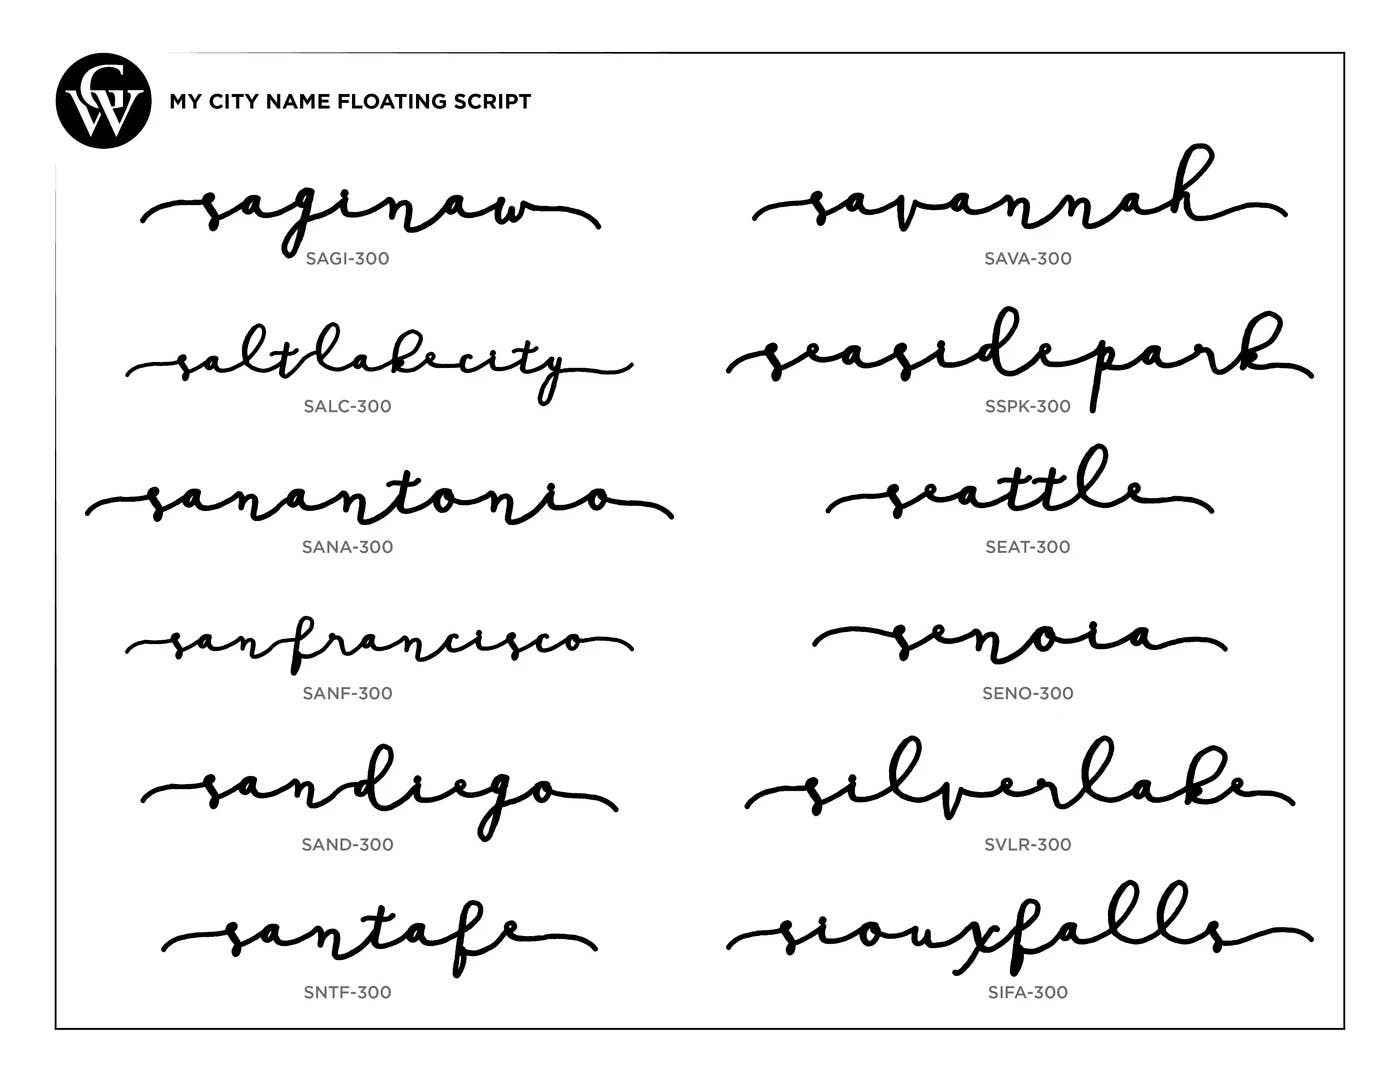 GW
MY CITY NAME FLOATING SCRIPT
saginaw
SAGI-300
savannah
SAVA-300
saltlakecity
SALC-300
seasidepark
SSPK-300
sanantonio
SANA-300
seattle
SEAT-300
sanfrancisco
SANF-300
senoia
SENO-300
sandiego
SAND-300
silverlake
SVLR-300
santafe
SNTF-300
siouxfalls
SIFA-300